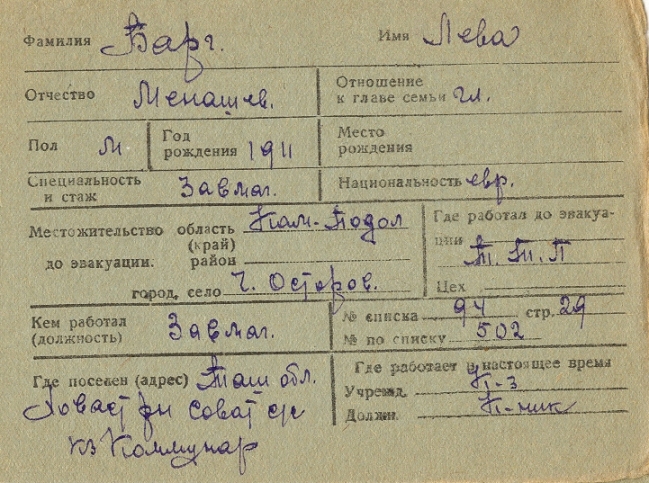 Фамилия Барг. Имя Лева
Отчество Менашев. Отношение к главе семьи гл.
Пол М Год рождения 1911 Место рождения
Специальность и стаж Завмаг. Национальность евр.
Местожительство область (край) Кам-Подол Где работал до эвакуации Т.Т.П
до эвакуации. район
город, село г. Остаров. Цех
Кем работал (должность) Завмаг. № списка 94 стр. 29
№ по списку 502
Где поселен (адрес) Таш обл. Где работает в настоящее время
Учрежд. К-з
Должн. К-ник
сот с/с
кз Коммунар